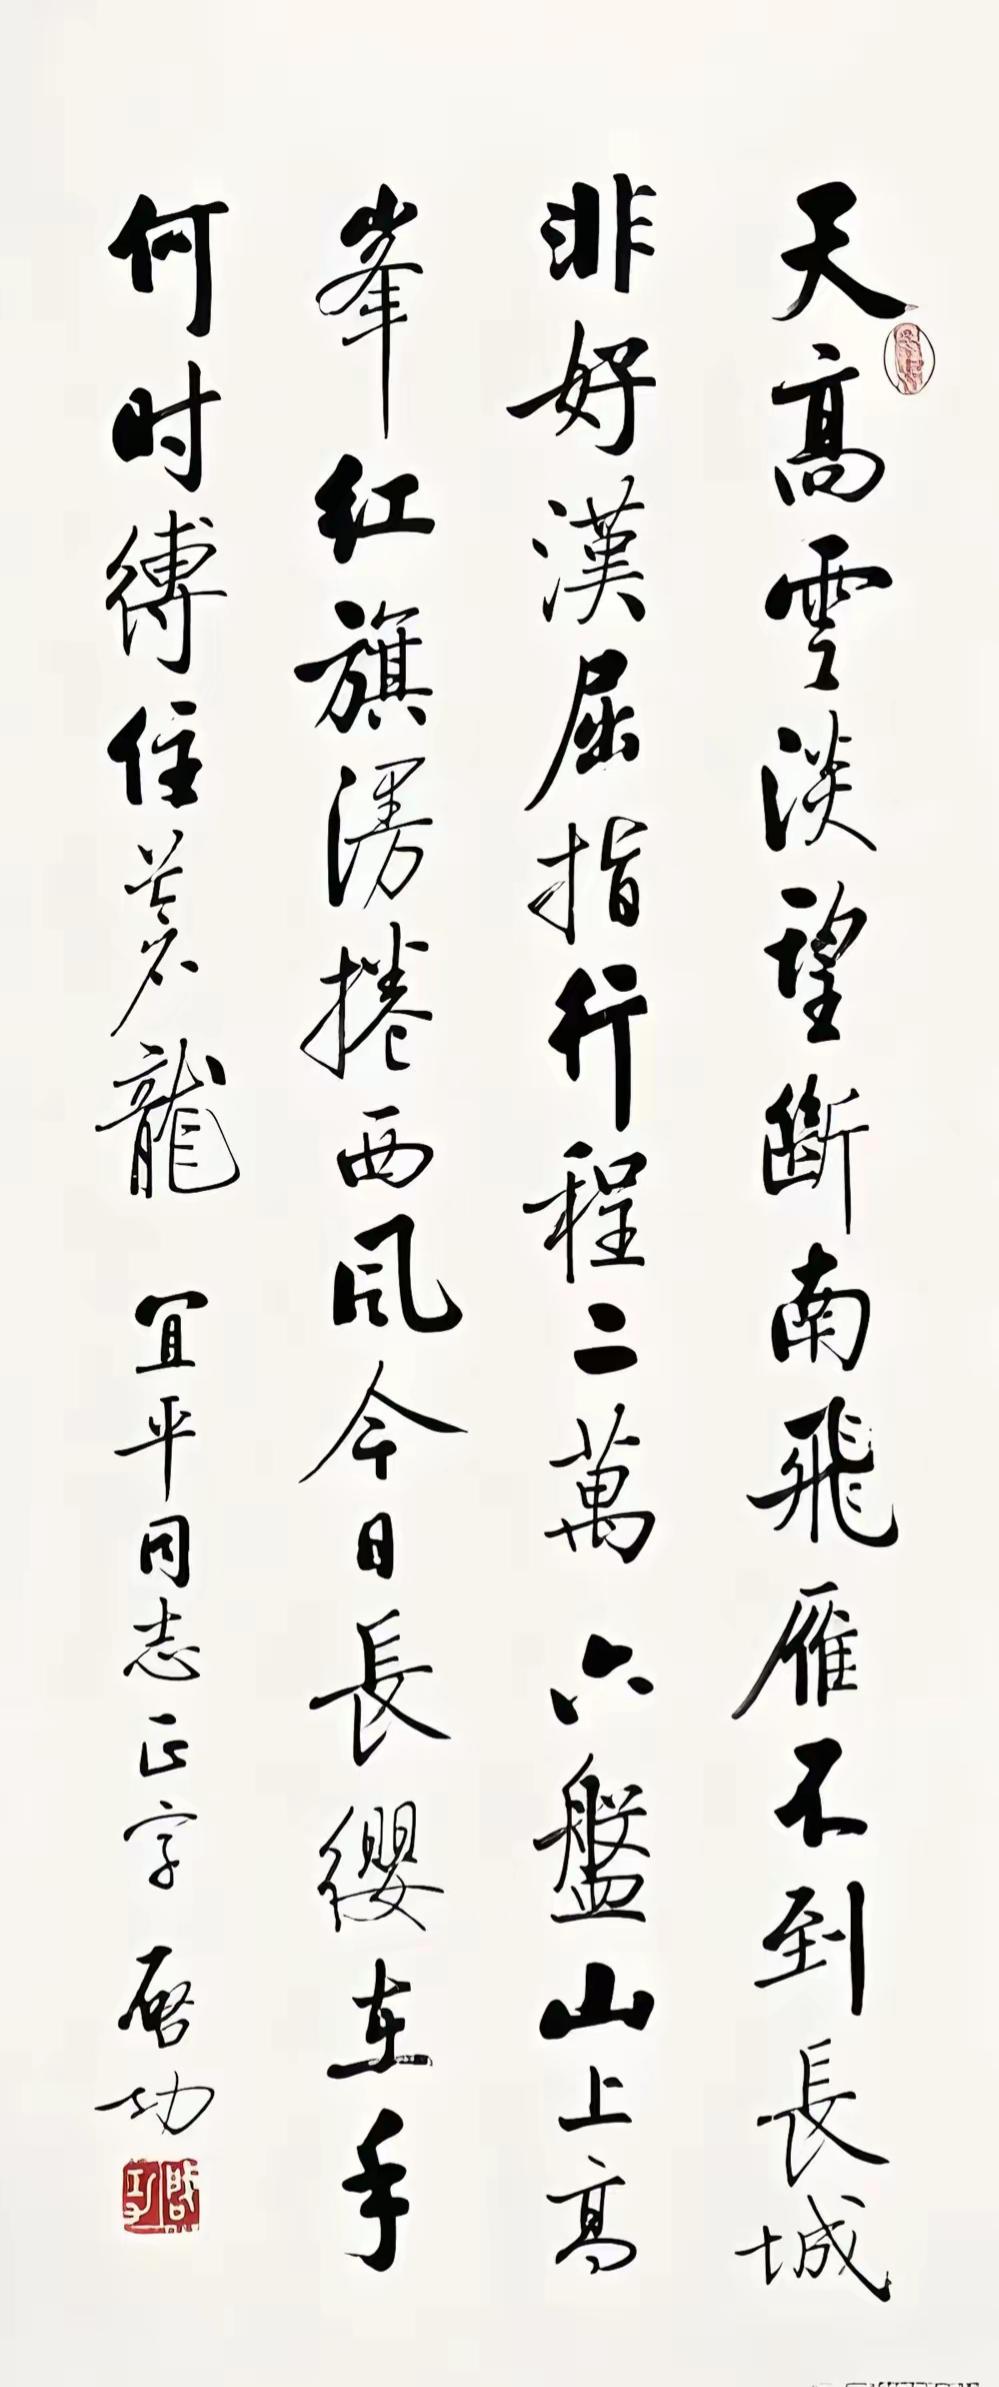 天高雲淡望斷南飛雁不到長城
非好漢屈指行程二萬六盤山上高
峯紅旗漫捲西风今日長纓在手
何时縛住蒼龍 宜平同志正字 启功
啓功